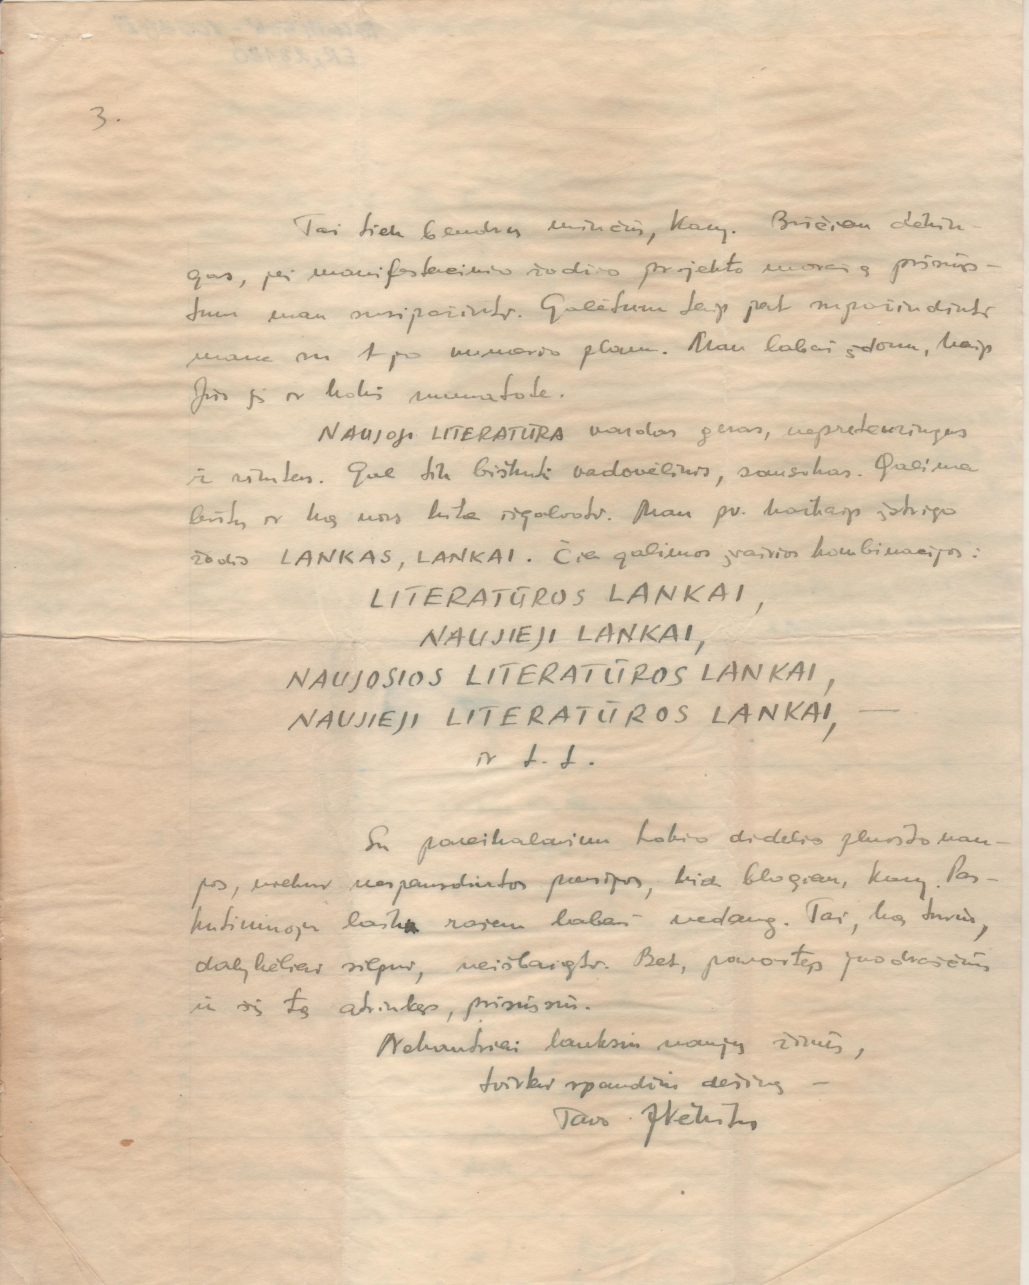 3.
Tai tiek bendrų minčių, Kazy. Bučiau dėkin-
gas, jei manifestacinio žodžio projekto nuorašą prisiųs-
tum man susipažinti. Galėtum taip pat supažindinti
mane su 1-jo numerio planu. Man labai įdomu, kaip
Jūs jį ir kokį numatote.
NAUJOJI LITERATŪRA vardas geras, nepretenzingas
ir rimtas. Gal tik biškutį vadovėlinis, sausokas. Galima
būtų ir ką nors kita išgalvoti. Man pv. kažkaip įstrigo
žodis LANKAS, LANKAI. Čia galimos įvairios kombinacijos:
LITERATŪROS LANKAI,
NAUJIEJI LANKAI,
NAUJOSIOS LITERATŪROS LANKAI,
NAUJIEJI LITERATŪROS LANKAI, —
ir t. t.
Su pareikalavimu tokio didelio pluošto nau-
jos, niekur nespausdintos poezijos, kiek blogiau, Kazy. Pas-
kutiniuoju laiku rašau labai nedaug. Tai, ką turiu,
dalykėliai silpni, neišbaigti. Bet, pavartęs juodraščius
ir šį tą atrinkęs, prisiųsiu.
Nekantriai lauksiu naujų žinių,
tvirtai spaudžiu dešinę —
Tavo